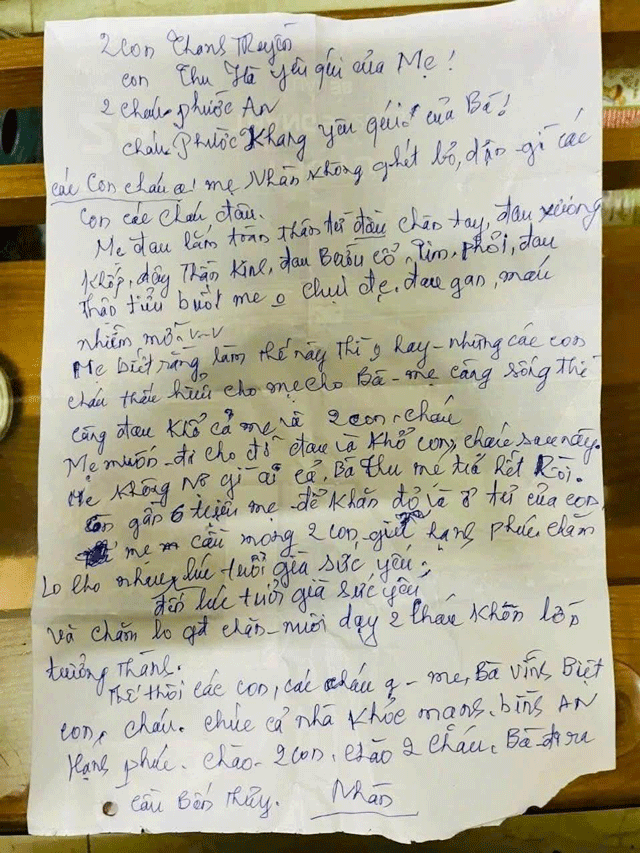 2 con Thanh Tuyền
con Thu Hà yêu quí của Mẹ!
2 cháu Phước AN
cháu Phước Khang yêu quí của Bà!
các con cháu ạ! mẹ Nhàn không ghét bỏ, dận gì các
con các cháu đâu.
Mẹ đau lắm toàn thân từ đầu chân tay, đau xương
khớp, dây Thần Kinh, đau Bướu cổ, Tim, phổi, đau
thận tiểu buốt mẹ o chịu đc, đau gan, máu
nhiễm mỡ v-v
Mẹ biết rằng làm thế này thì o hay - nhưng các con
cháu thấu hiểu cho mẹ cho Bà - mẹ càng sống thì
càng đau khổ cả mẹ và 2 con, cháu
Mẹ muốn đi cho đỡ đau và khổ con, cháu sau này.
Mẹ không nợ gì ai cả, Bà Thu mẹ trả hết Rồi.
Còn gần 6 triệu mẹ để khăn đỏ và ở tủ của con,
mẹ cầu mong 2 con giữ hạnh phúc chăm
Lo cho nhau, lúc tuổi già sức yếu,
đến lúc tuổi già sức yếu
và chăm lo gđ chăn nuôi dạy 2 cháu khôn lớn
trưởng thành.
Thế thôi các con, các cháu q - mẹ, Bà vĩnh Biệt
con, cháu. chúc cả nhà khỏe mạnh, bình AN
Hạnh phúc. chào 2 con, chào 2 cháu. Bà đi ra
cầu Bến Thủy. Nhàn